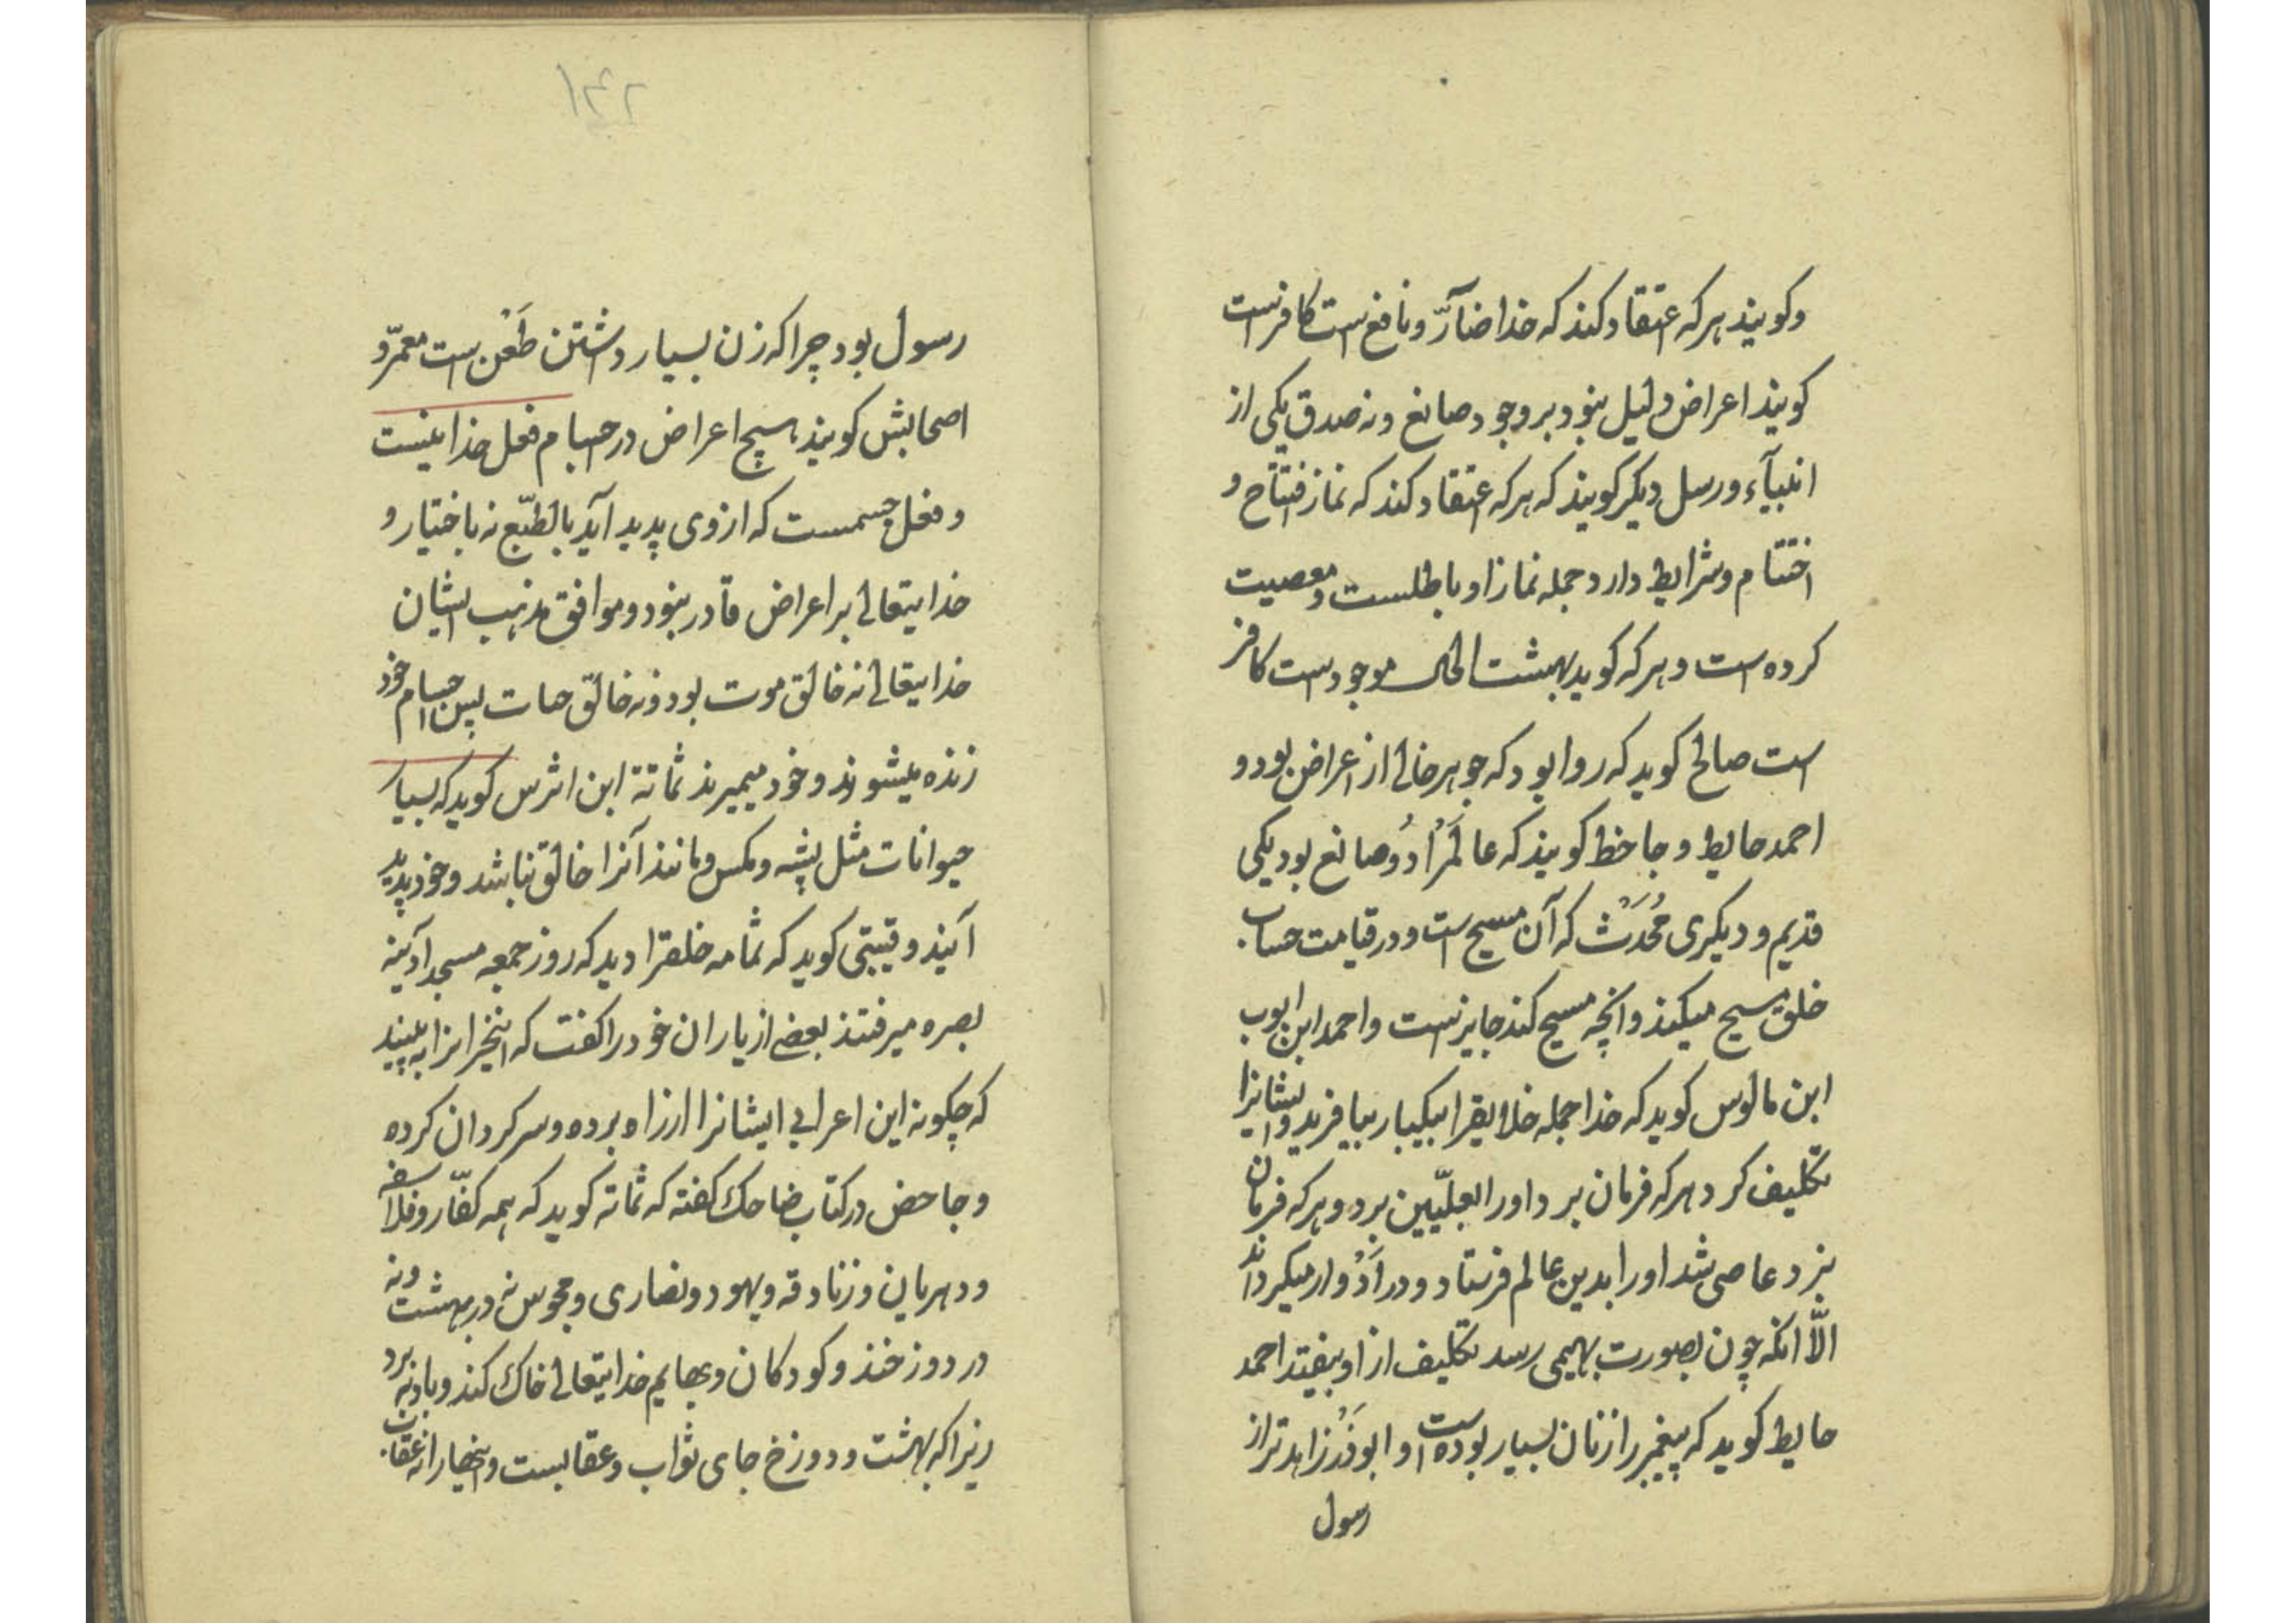 وکویند هرکه اعتقاد کند که خدا ضآرّ و نافع است کافر است
کویند اعراض دلیل نبود بر وجود صانع و نه صدق یکی از
انبیآء و رسل دیکر کویند که هرکه اعتقاد کند که نماز افتتاح و
اختتام و شرایط دارد جمله نماز او باطلست و معصیت
کرده است و هرکه کوید بهشت الحال موجود است کافر
است صالح کوید که روا بود که جوهر خالی از اعراض بود و
احمد حایط و جاحظ کویند که عالَمْ را دُو صانع بود یکی
قدیم و دیکری مُحْدَثْ که آن مسیح است و در قیامت حساب
خلق مسیح میکند و آنچه مسیح کند جایز است و احمد ابن ایوب
ابن مالوس کوید که خدا جمله خلایقرا بیکبار بیافرید و ایشانرا
تکلیف کرد هرکه فرمان برد او را بعلّیین برد و هرکه فرمان
نبرد عاصی شد او را بدین عالم فرستاد و در اَدْوار میکرداند
الّا آنکه چون بصورت بهیمی رسد تکلیف از او بیفتد احمد
حایط کوید که پیغمبر را زنان بسیار بوده است و ابوذَرْ زاهدتر از
رسول
۱۴۲
رسول بود چرا که زن بسیار داشتن طَعْن است معمّر و
اصحابش کویند هیچ اعراض در اجسام فعل خدا نیست
و فعل جسمست که از وی پدید آید بالطّبع نه باختیار و
خدایتعالی بر اعراض قادر نبود و موافق مذهب ایشان
خدایتعالی نه خالق موت بود و نه خالق حیات پس اجسام خود
زنده میشوند و خود میمیرند ثمامة ابن اشرس کوید که بسیار
حیوانات مثل پشه و مکس و مانند آنرا خالق نباشد و خود پدید
آیند و قتیبی کوید که ثمامه خلقرا دید که روز جمعه مسجد آدینه
بصره میرفتند بعضی از یاران خود را کفت که این خرانرا به بینید
که چکونه این اعرابی ایشانرا از راه برده و سرکردان کرده
و جاحض در کتاب ضاحک کفته که ثمامه کوید که همه کفّار و فلاسفه
و دهریان و زنادقه و یهود و نصاری و مجوس نه در بهشت و نه
در دوزخند و کودکان و بهایم خدایتعالی خاک کند و باد ببرد
زیرا که بهشت و دوزخ جای ثواب و عقابست و اینها را نه عقاب